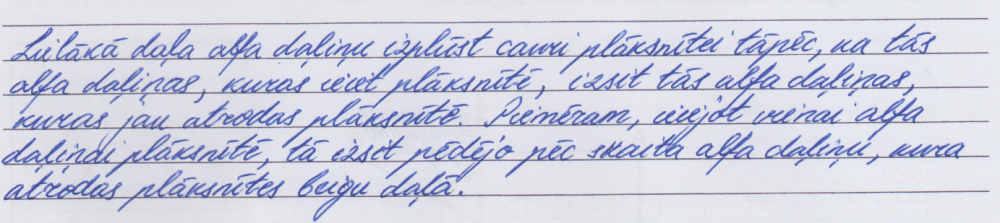 Lielākā daļa alfa daļiņu izplūst cauri plāksnītei tāpēc, ka tās
alfa daļiņas, kuras ieiet plāksnītē, izsit tās alfa daļiņas,
kuras jau atrodas plāksnītē. Piemēram, ieejot vienai alfa
daļiņai plāksnītē, tā izsit pēdējo pēc skaita alfa daļiņu, kura
atrodas plāksnītes beigu daļā.